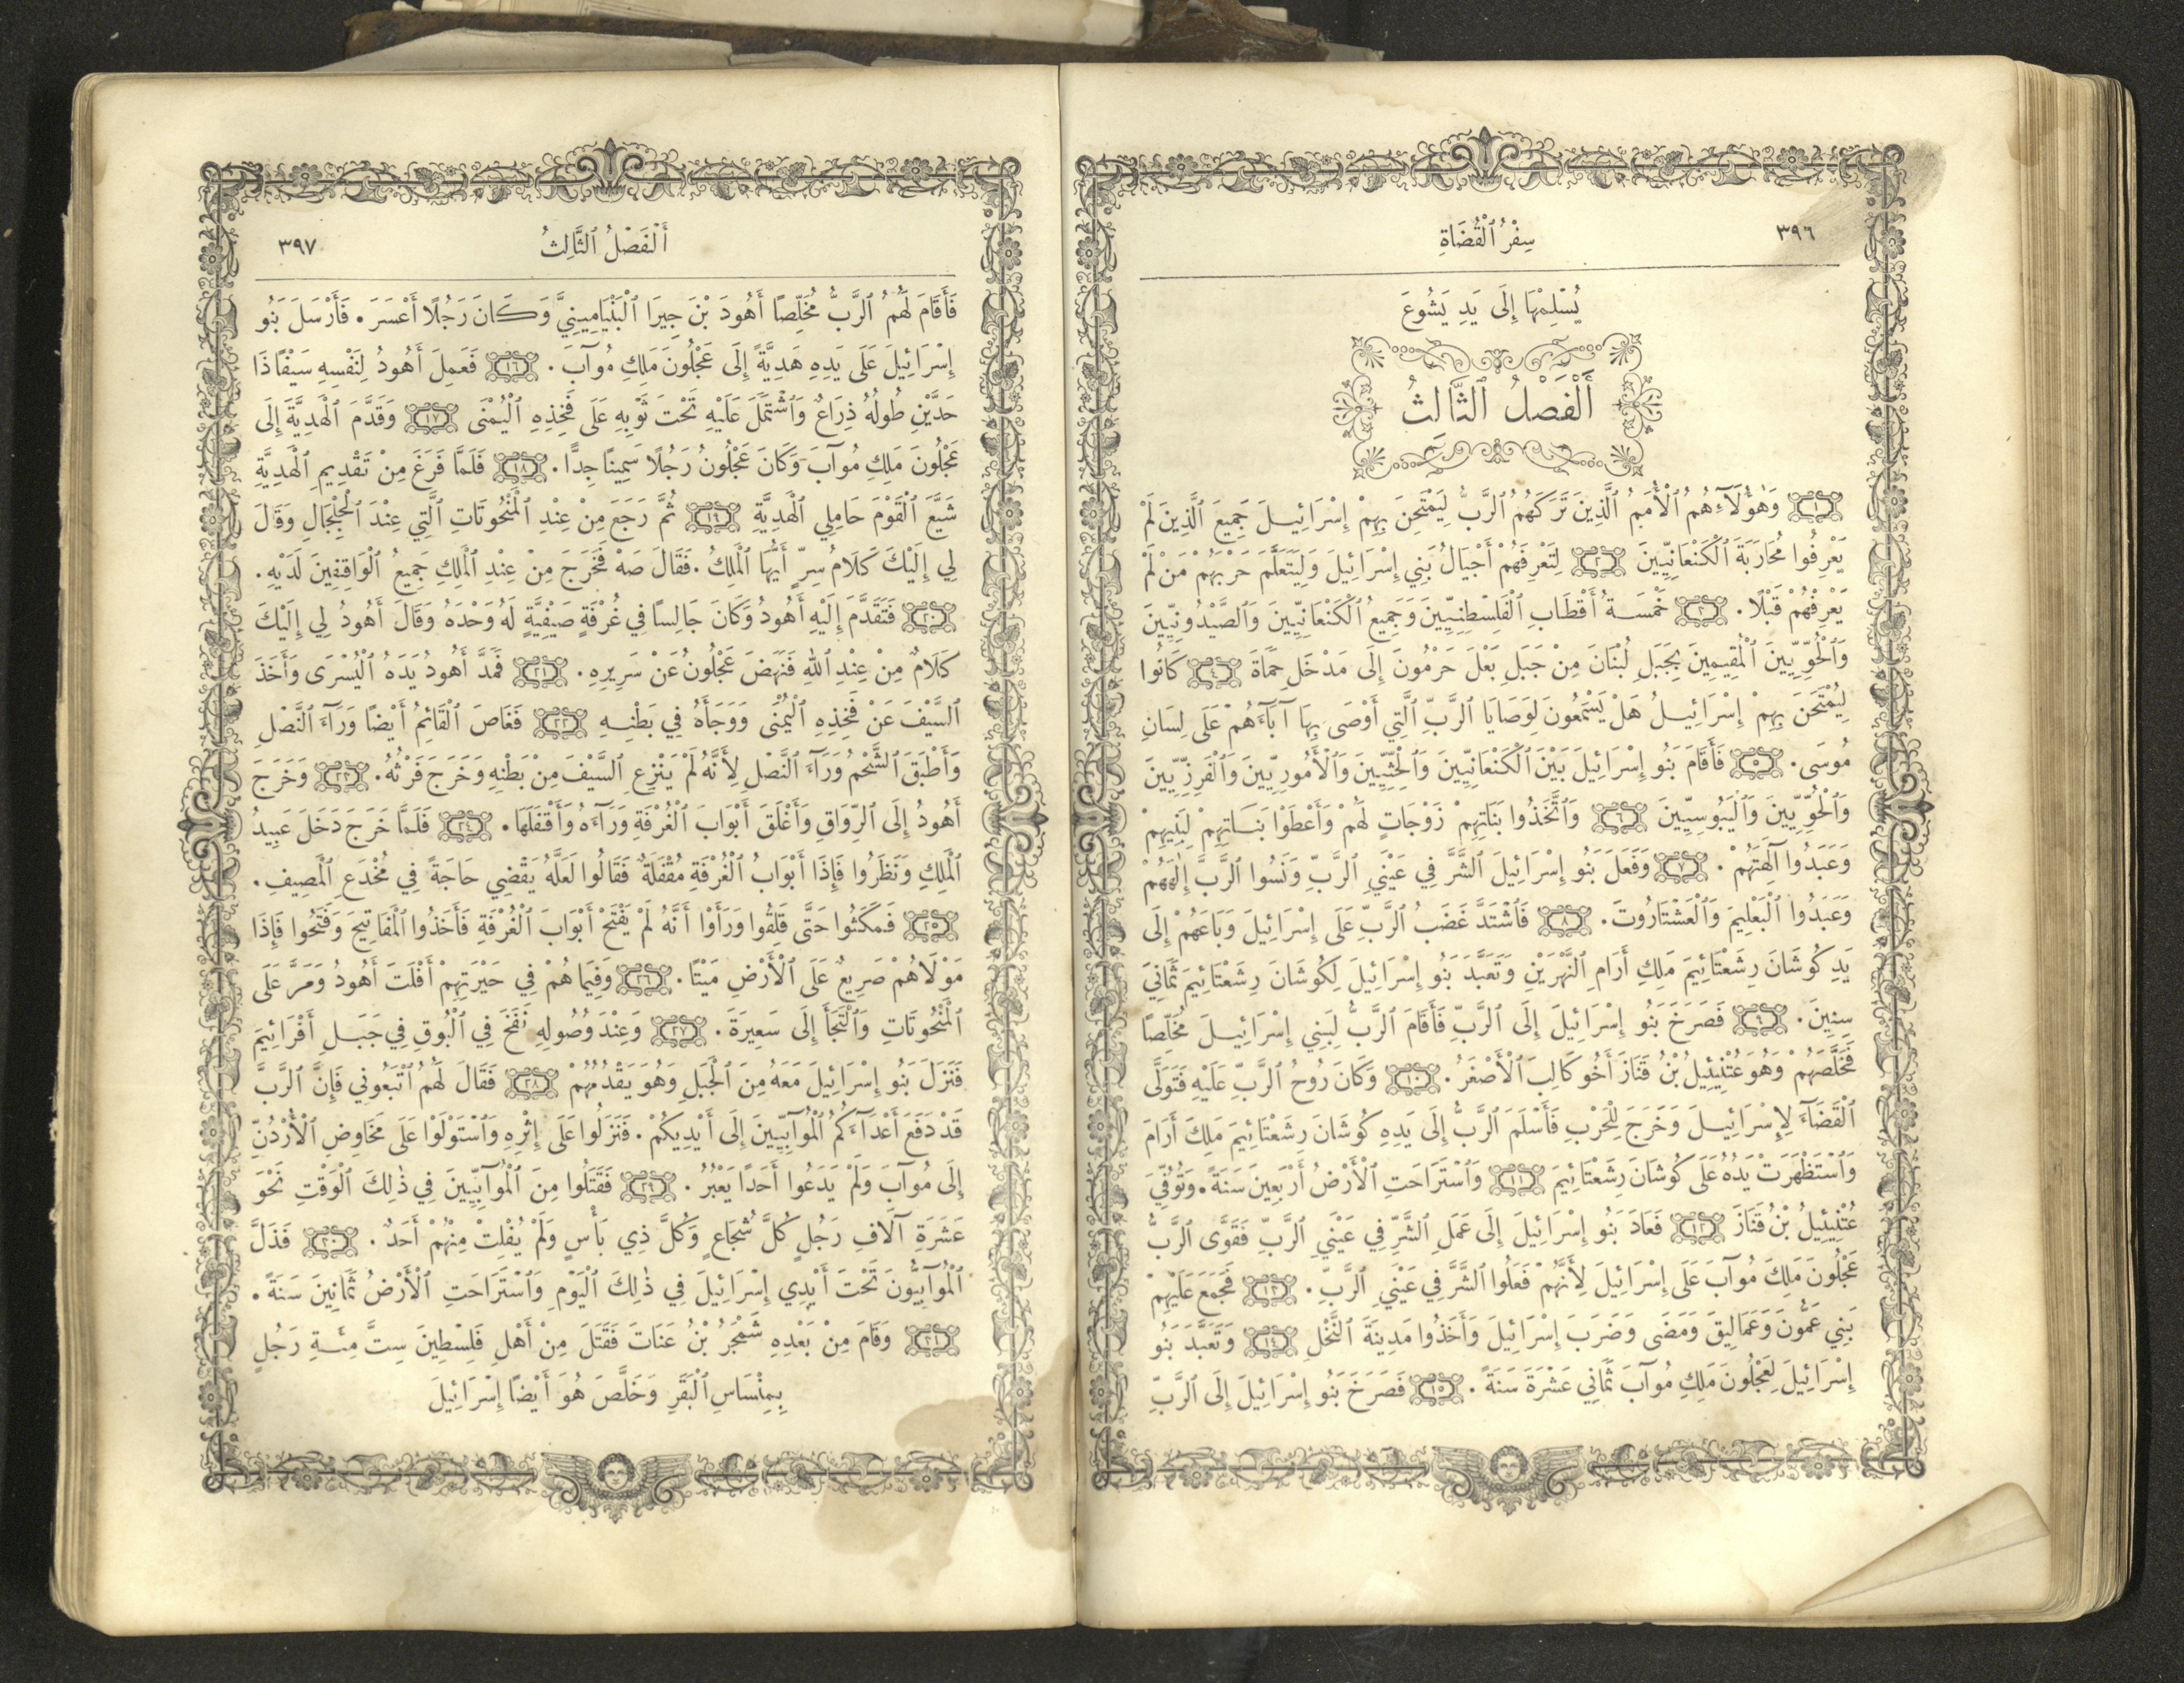 ٣٩٦
سِفْرُ ٱلْقُضَاةِ
يُسْلِمْهَا إِلَى يَدِ يَشُوعَ
أَلْفَصْلُ ٱلثَّالِثُ
١ وَهٰؤُلَآءِ هُمُ ٱلْأُمَمُ ٱلَّذِينَ تَرَكَهُمُ ٱلرَّبُّ لِيَمْتَحِنَ بِهِمْ إِسْرَائِيلَ جَمِيعَ ٱلَّذِينَ لَمْ
يَعْرِفُوا مُحَارَبَةَ ٱلْكَنْعَانِيِّينَ ٢ لِتَعْرِفَهُمْ أَجْيَالُ بَنِي إِسْرَائِيلَ وَلِيَتَعَلَّمَ حَرْبَهُمْ مَنْ لَمْ
يَعْرِفْهُمْ قَبْلًا. ٣ خَمْسَةُ أَقْطَابِ ٱلْفَلِسْطِنِيِّينَ وَجَمِيعُ ٱلْكَنْعَانِيِّينَ وَٱلصَّيْدُونِيِّينَ
وَٱلْحُوِّيِّينَ ٱلْمُقِيمِينَ بِجَبَلِ لُبْنَانَ مِنْ جَبَلِ بَعْلَ حَرْمُونَ إِلَى مَدْخَلِ حَمَاةَ ٤ كَانُوا
لِيُمْتَحَنَ بِهِمْ إِسْرَائِيلُ هَلْ يَسْتَمِعُونَ لِوَصَايَا ٱلرَّبِّ ٱلَّتِي أَوْصَى بِهَا آبَآءَهُمْ عَلَى لِسَانِ
مُوسَى. ٥ فَأَقَامَ بَنُو إِسْرَائِيلَ بَيْنَ ٱلْكَنْعَانِيِّينَ وَٱلْحِثِّيِّينَ وَٱلْأَمُورِيِّينَ وَٱلْفَرِزِّيِّينَ
وَٱلْحُوِّيِّينَ وَٱلْيَبُوسِيِّينَ ٦ وَٱتَّخَذُوا بَنَاتِهِمْ زَوْجَاتٍ لَهُمْ وَأَعْطَوْا بَنَاتِهِمْ لِبَنِيهِمْ
وَعَبَدُوا آلِهَتَهُمْ. ٧ وَفَعَلَ بَنُو إِسْرَائِيلَ ٱلشَّرَّ فِي عَيْنَيِ ٱلرَّبِّ وَنَسُوا ٱلرَّبَّ إِلٰهَهُمْ
وَعَبَدُوا ٱلْبَعْلِيمَ وَٱلْعَشْتَارُوتَ. ٨ فَٱشْتَدَّ غَضَبُ ٱلرَّبِّ عَلَى إِسْرَائِيلَ وَبَاعَهُمْ إِلَى
يَدِ كُوشَانَ رِشَعْتَائِيمَ مَلِكِ أَرَامِ ٱلنَّهْرَيْنِ وَتَعَبَّدَ بَنُو إِسْرَائِيلَ لِكُوشَانَ رِشَعْتَائِيمَ ثَمَانِيَ
سِنِينَ. ٩ فَصَرَخَ بَنُو إِسْرَائِيلَ إِلَى ٱلرَّبِّ فَأَقَامَ ٱلرَّبُّ لِبَنِي إِسْرَائِيلَ مُخَلِّصًا
فَخَلَّصَهُمْ وَهُوَ عُتْنِيئِيلُ بْنُ قَنَازَ أَخُو كَالِبَ ٱلْأَصْغَرُ. ١٠ وَكَانَ رُوحُ ٱلرَّبِّ عَلَيْهِ فَتَوَلَّى
ٱلْقَضَآءَ لِإِسْرَائِيلَ وَخَرَجَ لِلْحَرْبِ فَأَسْلَمَ ٱلرَّبُّ إِلَى يَدِهِ كُوشَانَ رِشَعْتَائِيمَ مَلِكَ أَرَامَ
وَٱسْتَظْهَرَتْ يَدُهُ عَلَى كُوشَانَ رِشَعْتَائِيمَ ١١ وَٱسْتَرَاحَتِ ٱلْأَرْضُ أَرْبَعِينَ سَنَةً. وَتُوُفِّيَ
عُتْنِيئِيلُ بْنُ قَنَازَ ١٢ فَعَادَ بَنُو إِسْرَائِيلَ إِلَى عَمَلِ ٱلشَّرِّ فِي عَيْنَيِ ٱلرَّبِّ فَقَوَّى ٱلرَّبُّ
عَجْلُونَ مَلِكَ مُوآبَ عَلَى إِسْرَائِيلَ لِأَنَّهُمْ فَعَلُوا ٱلشَّرَّ فِي عَيْنَيِ ٱلرَّبِّ. ١٣ فَجَمَعَ عَلَيْهِمْ
بَنِي عَمُّونَ وَعَمَالِيقَ وَمَضَى وَضَرَبَ إِسْرَائِيلَ وَأَخَذُوا مَدِينَةَ ٱلنَّخْلِ ١٤ وَتَعَبَّدَ بَنُو
إِسْرَائِيلَ لِعَجْلُونَ مَلِكِ مُوآبَ ثَمَانِيَ عَشْرَةَ سَنَةً. ١٥ فَصَرَخَ بَنُو إِسْرَائِيلَ إِلَى ٱلرَّبِّ
أَلْفَصْلُ ٱلثَّالِثُ
٣٩٧
فَأَقَامَ لَهُمُ ٱلرَّبُّ مُخَلِّصًا أَهُودَ بْنَ جِيرَا ٱلْبَنْيَامِينِيَّ وَكَانَ رَجُلًا أَعْسَرَ. فَأَرْسَلَ بَنُو
إِسْرَائِيلَ عَلَى يَدِهِ هَدِيَّةً إِلَى عَجْلُونَ مَلِكِ مُوآبَ. ١٦ فَعَمِلَ أَهُودُ لِنَفْسِهِ سَيْفًا ذَا
حَدَّيْنِ طُولُهُ ذِرَاعٌ وَٱشْتَمَلَ عَلَيْهِ تَحْتَ ثَوْبِهِ عَلَى فَخِذِهِ ٱلْيُمْنَى ١٧ وَقَدَّمَ ٱلْهَدِيَّةَ إِلَى
عَجْلُونَ مَلِكِ مُوآبَ وَكَانَ عَجْلُونُ رَجُلًا سَمِينًا جِدًّا. ١٨ فَلَمَّا فَرَغَ مِنْ تَقْدِيمِ ٱلْهَدِيَّةِ
شَيَّعَ ٱلْقَوْمَ حَامِلِي ٱلْهَدِيَّةِ ١٩ ثُمَّ رَجَعَ مِنْ عِنْدِ ٱلْمَنْحُوتَاتِ ٱلَّتِي عِنْدَ ٱلْجِلْجَالِ وَقَالَ
لِي إِلَيْكَ كَلَامُ سِرٍّ أَيُّهَا ٱلْمَلِكُ. فَقَالَ صَهْ فَخَرَجَ مِنْ عِنْدِ ٱلْمَلِكِ جَمِيعُ ٱلْوَاقِفِينَ لَدَيْهِ.
٢٠ فَتَقَدَّمَ إِلَيْهِ أَهُودُ وَكَانَ جَالِسًا فِي غُرْفَةٍ صَيْفِيَّةٍ لَهُ وَحْدَهُ وَقَالَ أَهُودُ لِي إِلَيْكَ
كَلَامٌ مِنْ عِنْدِ ٱللهِ فَنَهَضَ عَجْلُونُ عَنْ سَرِيرِهِ. ٢١ فَمَدَّ أَهُودُ يَدَهُ ٱلْيُسْرَى وَأَخَذَ
ٱلسَّيْفَ عَنْ فَخِذِهِ ٱلْيُمْنَى وَوَجَأَهُ فِي بَطْنِهِ ٢٢ فَغَاصَ ٱلْقَائِمُ أَيْضًا وَرَآءَ ٱلنَّصْلِ
وَأَطْبَقَ ٱلشَّحْمُ وَرَآءَ ٱلنَّصْلِ لِأَنَّهُ لَمْ يَنْزِعِ ٱلسَّيْفَ مِنْ بَطْنِهِ وَخَرَجَ فَرْثُهُ. ٢٣ وَخَرَجَ
أَهُودُ إِلَى ٱلرِّوَاقِ وَأَغْلَقَ أَبْوَابَ ٱلْغُرْفَةِ وَرَآءَهُ وَأَقْفَلَهَا. ٢٤ فَلَمَّا خَرَجَ دَخَلَ عَبِيدُ
ٱلْمَلِكِ وَنَظَرُوا فَإِذَا أَبْوَابُ ٱلْغُرْفَةِ مُقْفَلَةٌ فَقَالُوا لَعَلَّهُ يَقْضِي حَاجَةً فِي مُخْدَعِ ٱلْمَصِيفِ.
٢٥ فَمَكَثُوا حَتَّى قَلِقُوا وَرَأَوْا أَنَّهُ لَمْ يَفْتَحْ أَبْوَابَ ٱلْغُرْفَةِ فَأَخَذُوا ٱلْمَفَاتِيحَ وَفَتَحُوا فَإِذَا
مَوْلَاهُمْ صَرِيعٌ عَلَى ٱلْأَرْضِ مَيْتًا. ٢٦ وَفِيمَا هُمْ فِي حَيْرَتِهِمْ أَفْلَتَ أَهُودُ وَمَرَّ عَلَى
ٱلْمَنْحُوتَاتِ وَٱلْتَجَأَ إِلَى سَعِيرَةَ. ٢٧ وَعِنْدَ وُصُولِهِ نَفَخَ فِي ٱلْبُوقِ فِي جَبَلِ أَفْرَائِيمَ
فَنَزَلَ بَنُو إِسْرَائِيلَ مَعَهُ مِنَ ٱلْجَبَلِ وَهُوَ يَقْدُمُهُمْ ٢٨ فَقَالَ لَهُمُ ٱتْبَعُونِي فَإِنَّ ٱلرَّبَّ
قَدْ دَفَعَ أَعْدَآءَكُمُ ٱلْمُوآبِيِّينَ إِلَى أَيْدِيكُمْ. فَنَزَلُوا عَلَى إِثْرِهِ وَٱسْتَوْلَوْا عَلَى مَخَاوِضِ ٱلْأُرْدُنِّ
إِلَى مُوآبَ وَلَمْ يَدَعُوا أَحَدًا يَعْبُرُ. ٢٩ فَقَتَلُوا مِنَ ٱلْمُوآبِيِّينَ فِي ذٰلِكَ ٱلْوَقْتِ نَحْوَ
عَشَرَةِ آلَافِ رَجُلٍ كُلَّ شُجَاعٍ وَكُلَّ ذِي بَأْسٍ وَلَمْ يُفْلِتْ مِنْهُمْ أَحَدٌ. ٣٠ فَذَلَّ
ٱلْمُوآبِيُّونَ تَحْتَ أَيْدِي إِسْرَائِيلَ فِي ذٰلِكَ ٱلْيَوْمِ وَٱسْتَرَاحَتِ ٱلْأَرْضُ ثَمَانِينَ سَنَةً.
٣١ وَقَامَ مِنْ بَعْدِهِ شَمْجَرُ بْنُ عَنَاتَ فَقَتَلَ مِنْ أَهْلِ فَلِسْطِينَ سِتَّ مِئَةِ رَجُلٍ
بِمِنْسَاسِ ٱلْبَقَرِ وَخَلَّصَ هُوَ أَيْضًا إِسْرَائِيلَ